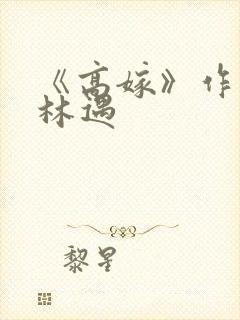 《高嫁》作
林遇
黎星